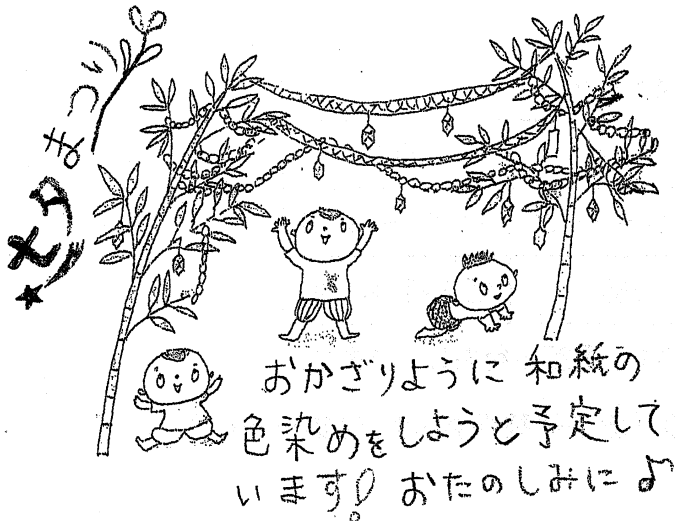 ★七夕まつり
おかざりように和紙の
色染めをしようと予定して
います! おたのしみに♪